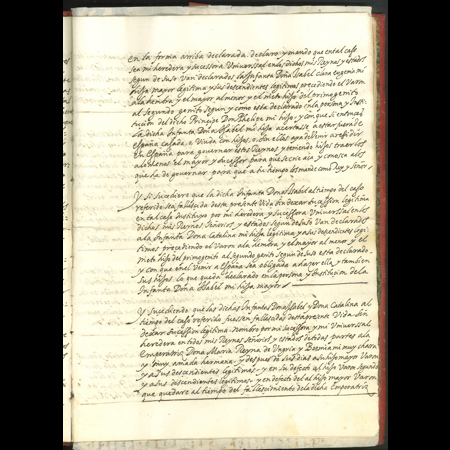 en la forma arriba declarada declaro y mando que en tal caso
sea mi heredera y sucessora Universal en los dichos mis Reynos y estados
segun de suso van declarados la Infanta Doña Isabel clara eugenia mi
hija mayor legitima y sus descendientes legitimos precediendo el Varon
a la hembra y el mayor al menor y el nieto hijo del primogenito
al segundo genito segun y como esta declarado en la persona y Insti-
tucion del dicho Principe Don Phelipe mi hijo y con que si entonces
la dicha Infanta Doña Isabel mi hija acertase a estar fuera de
España casada o Viuda con hijos o sin ellos aya de venir a residir
en España para governar estos Reynos y teniendo hijos traerlos
al de menos el mayor y sucessor para que se crie aca y conozca a los
que ha de governar para que a su tiempo los mande como Rey y Señor
Y si sucediere que la dicha Infanta Doña Isabel al tiempo del caso
referido sea fallecida desta presente Vida sin dexar sucession legitima
en tal caso Instituyo por mi heredera y sucessora Universal en los
dichos mis Reynos Señorios y estados segun de suso Van declarados
a la Infanta Doña Catalina mi hija legitima y a sus descendientes legi-
timos precediendo el Varon a la hembra y el mayor al menor y el
nieto hijo del primogenito al segundo genito segun de suso esta declarado
y con que en el Venir a España sea obligada a hazer ella y tambien
sus hijos lo que queda declarado en la persona y Institucion de la
Infanta Doña Isabel mi hija mayor
Y sucediendo que las dichas Infantas Doña Isabel y Doña Catalina al
tiempo del caso referido fuessen fallecidas desta presente Vida sin
dexar sucession legitima nombro por mi sucessora y mi Universal
heredera en todos mis Reynos Señorios y estados a la
Emperatriz Doña Maria Reyna de Ungria y Bohemia mi muy chara
y muy amada hermana y despues de sus dias a su hijo mayor Varon
y a sus descendientes legitimos y en su defecto al hijo Varon segundo
y a sus descendientes legitimos y en defecto del al hijo mayor Varon
que quedare al tiempo del fallescimiento de la dicha Emperatriz